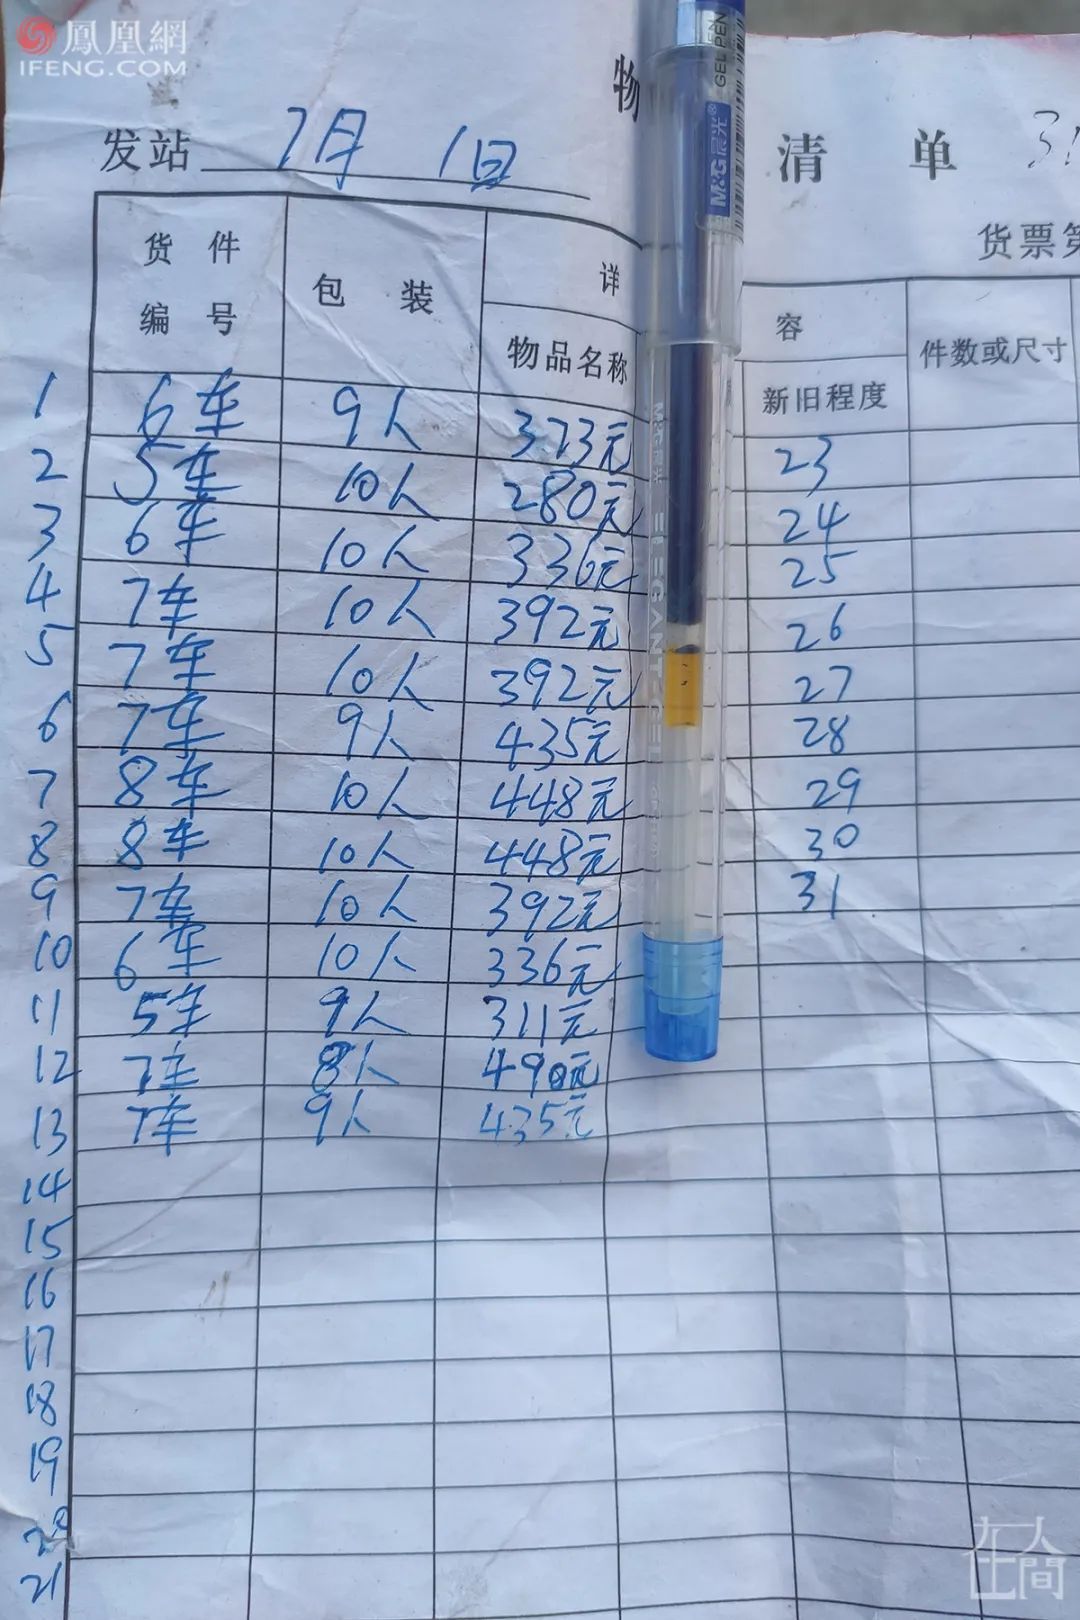 鳳凰網
IFENG.COM
物 清 单 31
发站 7月 1日
货票第
货件编号 包装 详 容 件数或尺寸
物品名称 新旧程度
1 6车 9人 373元 23
2 5车 10人 280元 24
3 6车 10人 336元 25
4 7车 10人 392元 26
5 7车 10人 392元 27
6 7车 9人 435元 28
7 8车 10人 448元 29
8 8车 10人 448元 30
9 7车 10人 392元 31
10 6车 10人 336元
11 5车 9人 311元
12 7车 8人 490元
13 7车 9人 435元
14
15
16
17
18
19
20
21
GEL PEN
M&G晨光
ELEGANT GEL
在人間